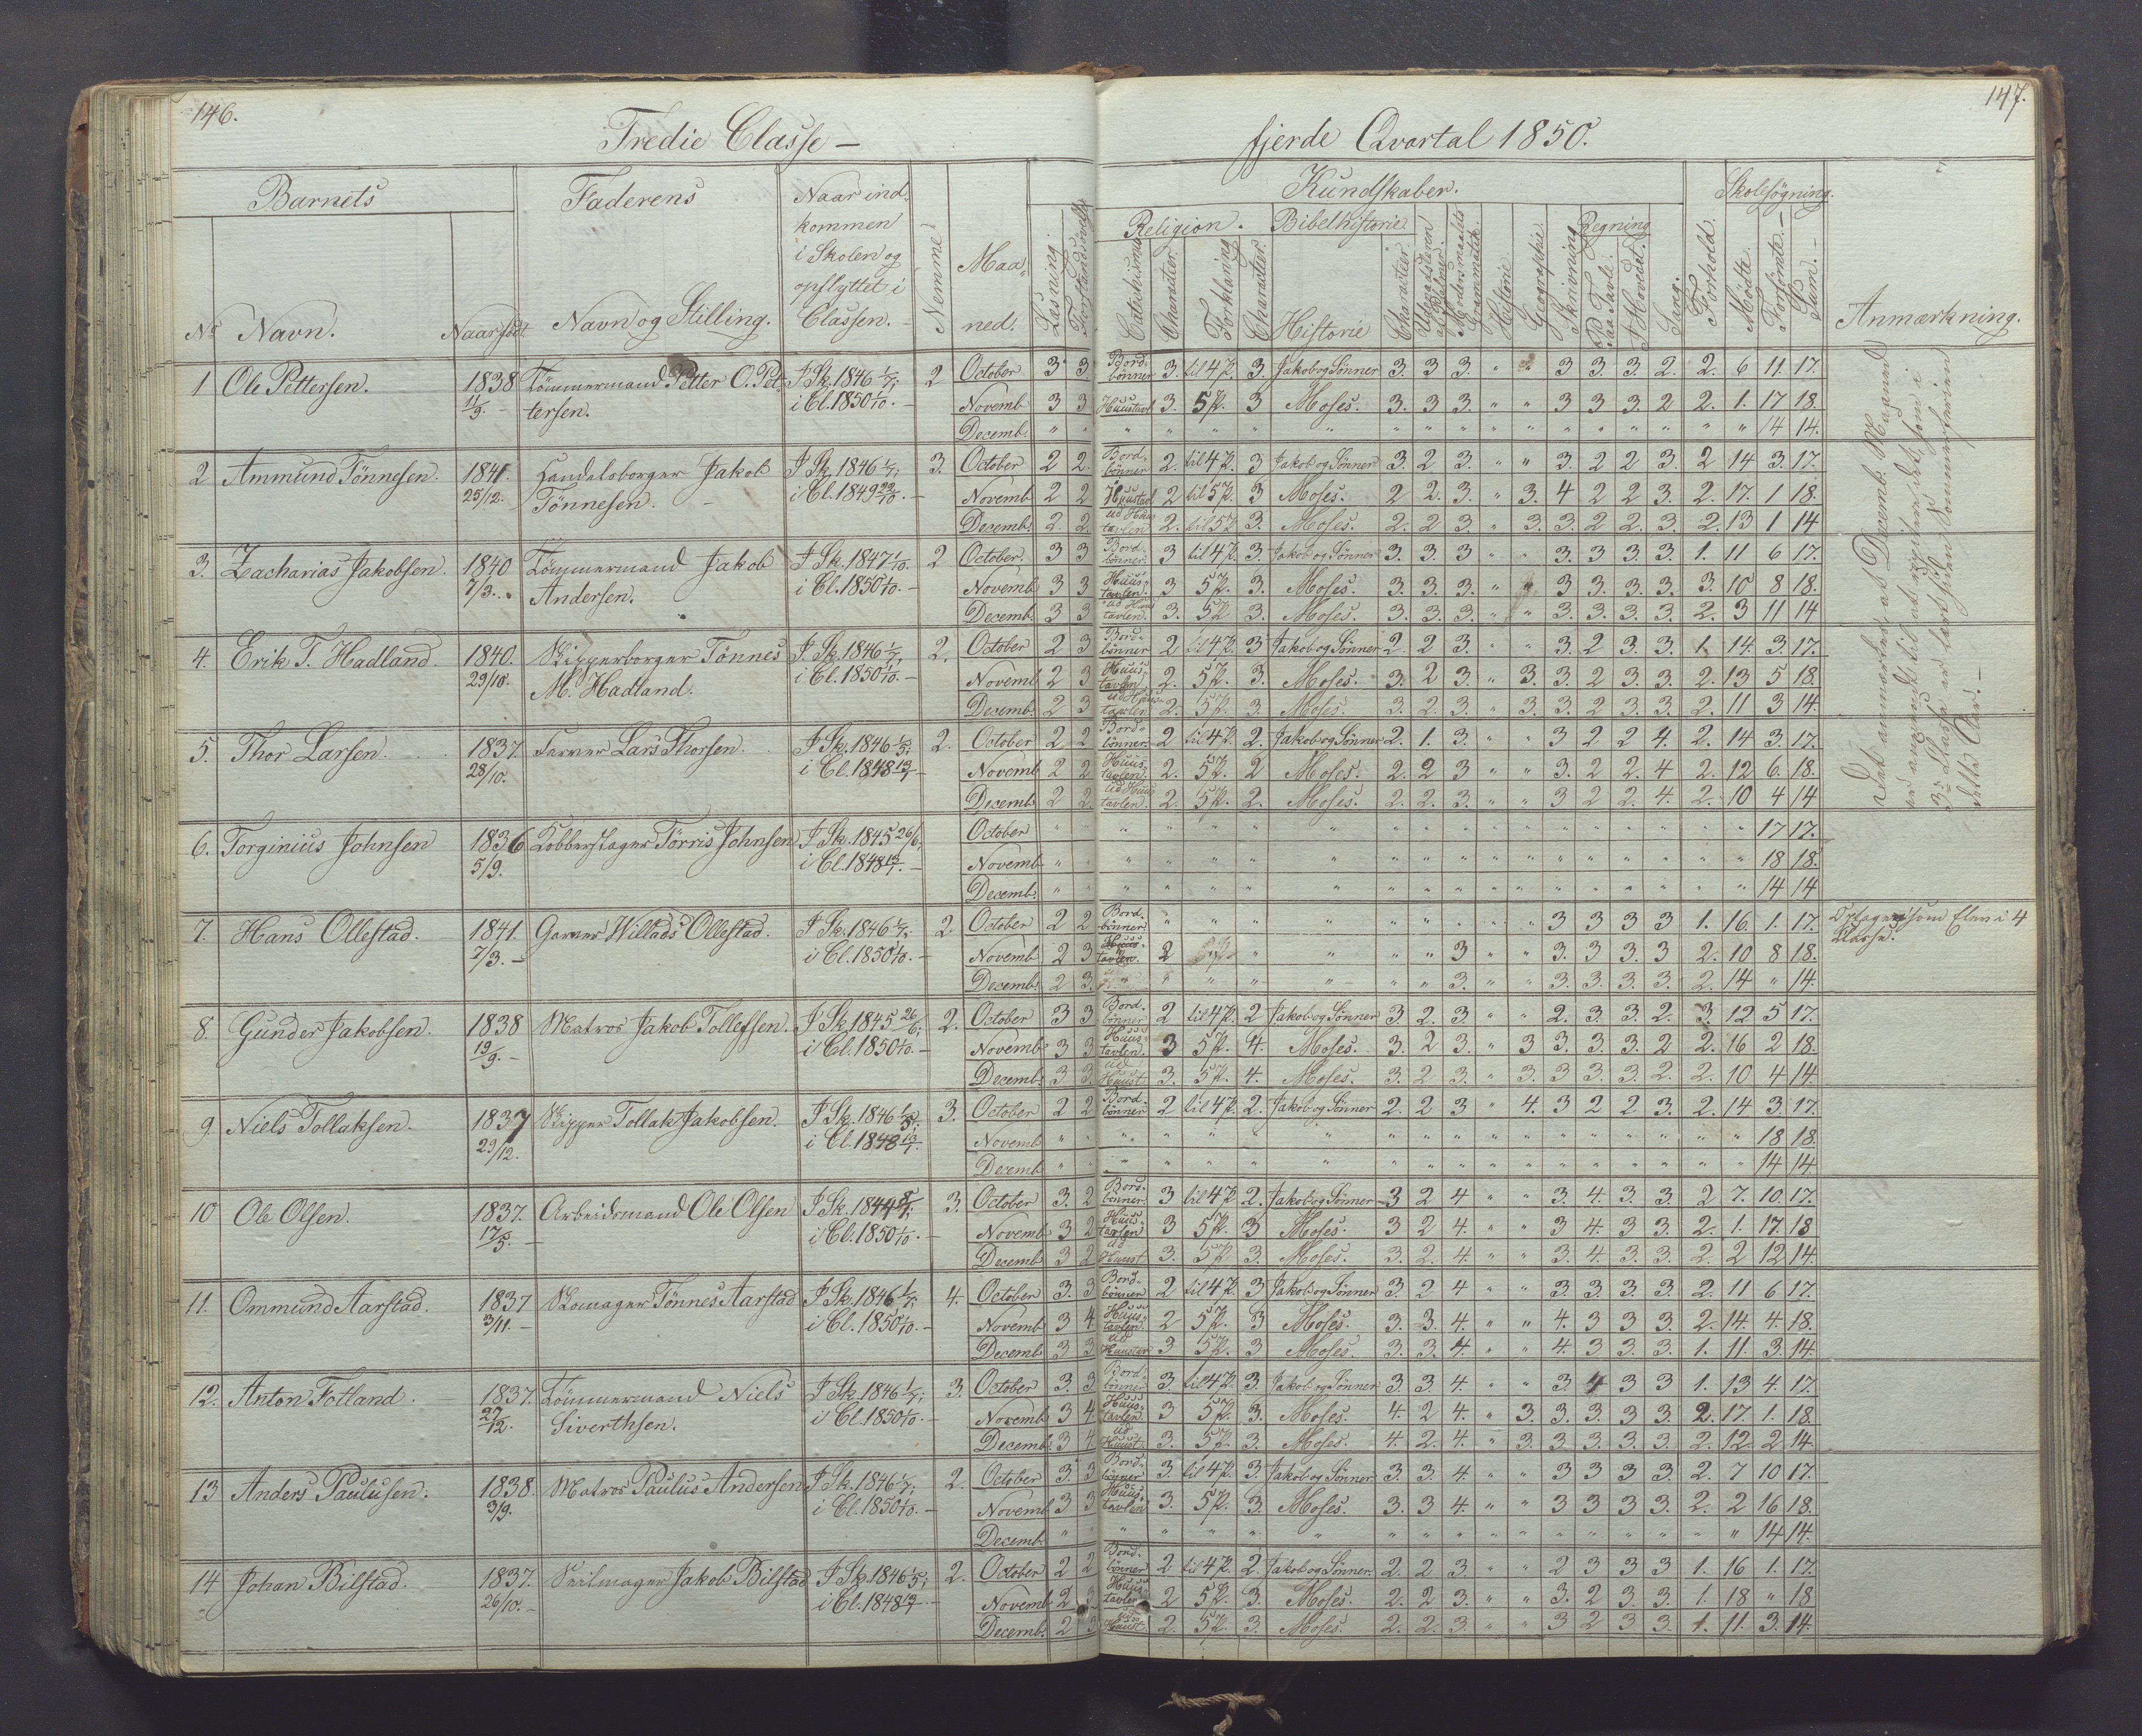 146.
147.
Tredie Classe –
fjerde Qvartal 1850.
Barnets
Faderens
Naar ind-
kommen
i Skolen og
opflyttet i
Classen. –
Nemme
Maa-
ned.
Kundskaber.
Skolesøgning.
Læsning
Forstandsøvelse
Religion. Bibelhistorie
Catechismus
Character.
Forklaring
Character.
Historie
Character.
Modersmaalets
Grammatik.
Historie
Geographie.
Skrivning
Regning
Paa Tavle.
I Hovedet.
Sang.
Forhold.
Mödte.
Forsömte.
Sum. –
Anmærkning.
No Navn. Naar födt Navn og Stilling.
1 Ole Pettersen. 1838 Tömmermand Petter O. Pet- I Sk. 1846 1/7; 2 October 3 3. Bord- bönner 3. til 4 P. 3. Jakob og Sönner 3. 3 3. " " 3 3 3 2. 2. 6 11. 17.
11/9. – tersen. i Cl. 1850 1/10. – Novemb 3 3 Huustavl 3. 5 P. 3 Moses. 3. 3 3. " " 3 3 3. 2 2. 1. 17 18.
Decemb. " " " " " " " " " " " " " " " " " " " 14 14.
2 Ammund Tönnesen. 1841. Handelsborger Jakob I Sk. 1846 1/7; 3. October 2 2. Bord- bönner 2. til 4 P. 3 Jakob og Sönner 3. 2 3. " " 3. 2 2 3. 2 14 3. 17.
25/12. Tönnesen. – i Cl. 1849 22/10. – Novemb 2 2 Huustavl 2 til 5 P. 3 Moses. 2 2. 3. " 3. 4 2 2 3. 2. 17. 1 18.
Decemb. 2. 2. ud Huus- tavlen 2. til 5 P. 3. Moses. 2. 2. 3 " 3. 3. 2 2. 3. 2. 13 1 14
3. Zacharias Jakobsen. 1840 Tömmermand Jakob I Sk. 1847 1/10. 2 October. 3 3 Bord- bönner. 3 til 4 P. 3 Jakob og Sönner 3. 3. 3 " " 3. 3. 3. 3. 1. 11 6 17.
7/3. . Andersen. i Cl. 1850 1/10. – Novemb 3 3 Huus- tavlen. 3 5 P. 3. Moses. 3. 3. 3. " " 3. 3. 3. 3. 3. 10 8 18.
Decemb. 3 3 ud Huus- tavlen. 3. 5 P. 3. Moses. 3. 3. 3. " " 3. 3. 3. 3. 2. 3 11 14
4. Erik T. Hadland. 1840. Skipperborger Tönnes I Sk. 1846 1/7; 2. October 2 3 Bord- bönner 2 til 4 P. 3 Jakob og Sönner 2. 2 3. " " 3. 2 3. 3 1. 14. 3. 17.
29/10. M. Hadland. i Cl. 1850 1/10. – Novemb 2 3 Huus- tavlen 2. 5 P. 3. Moses. 3. 2 3. " 3. 3. 2 3. 3. 2. 13 5 18.
Decemb. 2 3 ud Huus- tavlen 2. 5 P. 3. Moses. 3. 2. 3. " 3. 3. 2 3. 3. 2. 11 3 14.
5. Thor Larsen. 1837. Farver Lars Thorsen. I Sk. 1846 1/5; 2. October 2 2 Bord- bönner. 2 til 4 P. 2. Jakob og Sönner 2. 1. 3. " " 3 2 2 4. 2. 14 3. 17.
28/10. i Cl. 1848 13/7 – Novemb 2 2 Huus- tavlen. 2. 5 P. 2 Moses. 2. 2 3 " " 3. 2 2. 4 2. 12 6. 18.
Decemb. 2 2. ud Huus- tavlen. 2. 5 P. 2. Moses. 2. 2. 3. " " 3 2 2. 4. 2. 10 4 14
6. Torginius Johnsen 1836 Kobberslager Törris Johnsen I Sk. 1845 26/6; October " " " " " " " " " " " " " " " " " " " 17 17.
5/9. i Cl. 1848 13/7. – Novemb " " " " " " " " " " " " " " " " " " " 18 18.
Decemb. " " " " " " " " " " " " " " " " " " " 14 14
7. Hans Ollestad. 1841. Garver Willads Ollestad. I Sk. 1846 1/7; 2. October 2 2 Bord- bönner " " " " " " " " " 3 3 3 3 1. 16. 1. 17. Optagen som Elev i 4
7/3. – i Cl. 1850 1/10. – Novemb 2 3 Huus- tavlen. 2 " " " " 3 " " 3. 3. 3 3 2. 10 8 18. Klasse.
Decemb. 2 3. " " " " " " " 3. " " 3. 3. 3. 3. 2. 14 " 14.
8. Gunder Jakobsen. 1838 Matros Jakob Tollefsen. I Sk. 1845 26/6; 2. October 3 3 Bord- bönner 2 til 4 P. 2 Jakob og Sönner 3. 2. 3. " " 2. 3. 3. 2. 3. 12 5 17.
19/9. – i Cl. 1850 1/10. – Novemb 3 3 Huus- tavlen. 3 5 P. 4. Moses. 3. 2 3. " 3 3. 3. 3. 2 2. 16 2 18.
Decemb. 3 3. ud Huust 3. 5 P. 4. Moses. 3. 2 3. " 3. 3 3. 3. 2. 2. 10 4 14.
9. Niels Tollaksen. 1837 Skipper Tollak Jakobsen. I Sk. 1846 1/5; 3. October 2 2 Bord- bönner 2 til 4 P. 2. Jakob og Sönner 2. 2 3 " 4. 3 2 2 3. 2. 14 3. 17.
29/12. i Cl. 1848 13/7. Novemb " " " " " " " " " " " " " " " " " " " 18 18.
Decemb " " " " " " " " " " " " " " " " " " " 14 14
10 Ole Olsen. 1837. Arbeidsmand Ole Olsen I Sk. 1844 3. October 3. 2 Bord- bönner. 3 til 4 P. 2. Jakob og Sönner 3 2 4 " " 3. 4. 3. 3. 2 7. 10. 17.
17/5. – i Cl. 1850 1/10. – Novemb 3 2 Huus- tavlen 3 5 P. 3 Moses. 3 2 4. " " 3 4. 3 3. 2. 1. 17. 18
Decemb 3 2 ud Huust 3. 5 P. 3. Moses. 3. 2. 4. " " 3. 4. 3. 3. 2. 2 12 14.
11. Ommund Aarstad. 1837 Skomager Tönnes Aarstad I Sk. 1846 1/7; 4. October 3. 3 Bord- bönner 2 til 4 P. 3 Jakob og Sönner 3. 2 4 " " 3. 3. 3. 3. 2. 11 6 17.
3/11. – i Cl. 1850 1/10. – Novemb 3 4 Huus- tavlen. 2 5 P. 3 Moses. 3. 3. 4. " " 4. 3 3 3. 2. 14. 4. 18.
Decemb 3 3 ud Huustav 3 5 P. 3 Moses. 3. 3. 4. " " 4. 3 3. 3. 1. 11. 3. 14.
12. Anton Fotland. 1837. Tömmermand Niels I Sk. 1846 1/7; 3. October 3. 3 Bord- bönner 3. til 4 P. 3. Jakob og Sönner 3. 3 4. " " 3. 4 3 3 1. 13 4. 17.
27/12. Siverthsen. i Cl. 1850 1/10. – Novemb 3 4 Huus- tavlen. 3 5 P. 3. Moses. 4. 2 4. " 3. 3. 3. 3 3. 2. 17. 1. 18.
Decemb. 3 4. ud Huust. 3. 5 P. 3. Moses. 4. 2. 4. " 3. 3 3. 3. 3. 2. 12. 2 14.
13 Anders Paulusen. 1838. Matros Paulus Andersen I Sk. 1846 1/7; 2. October 3. 3 Bord- bönner 3. til 4 P. 3. Jakob og Sönner 3. 3. 4. " " 3 3 3 3. 2. 7 10 17.
3/9. i Cl. 1850 1/10. – Novemb 3 3 Huus- tavlen 3. 5 P. 3. Moses. 3. 3 4. " " 3 3 3 3. 2. 2 16 18.
Decemb. " " " " " " " " " " " " " " " " " " " 14 14.
14 Johan Bilstad. 1837. Seilmager Jakob Bilstad I Sk. 1846 1/5; 2. October 2 2 Bord- bönner 2. til 4 P. 2. Jakob og Sönner. 2. 2 3 " " 2 3 3 3 1. 16 1. 17.
26/10. – i Cl. 1848 13/7 – Novemb. 2 3 Huus- tavlen 2 5 P. 3. Moses. 2. 2 3. " " 3. 2 3. 3. 1. 18 " 18
Decemb. 2 3 Huust. 2. 5 P. 3. Moses. 2. 2. 3. " " 3 2 3 3. 1. 11. 3. 14.
Det anmærkes, at Decemb. Maaned
er anvendt til at repetere det, som i
3die Classe er lært siden Sommerferien
dette Aar. –